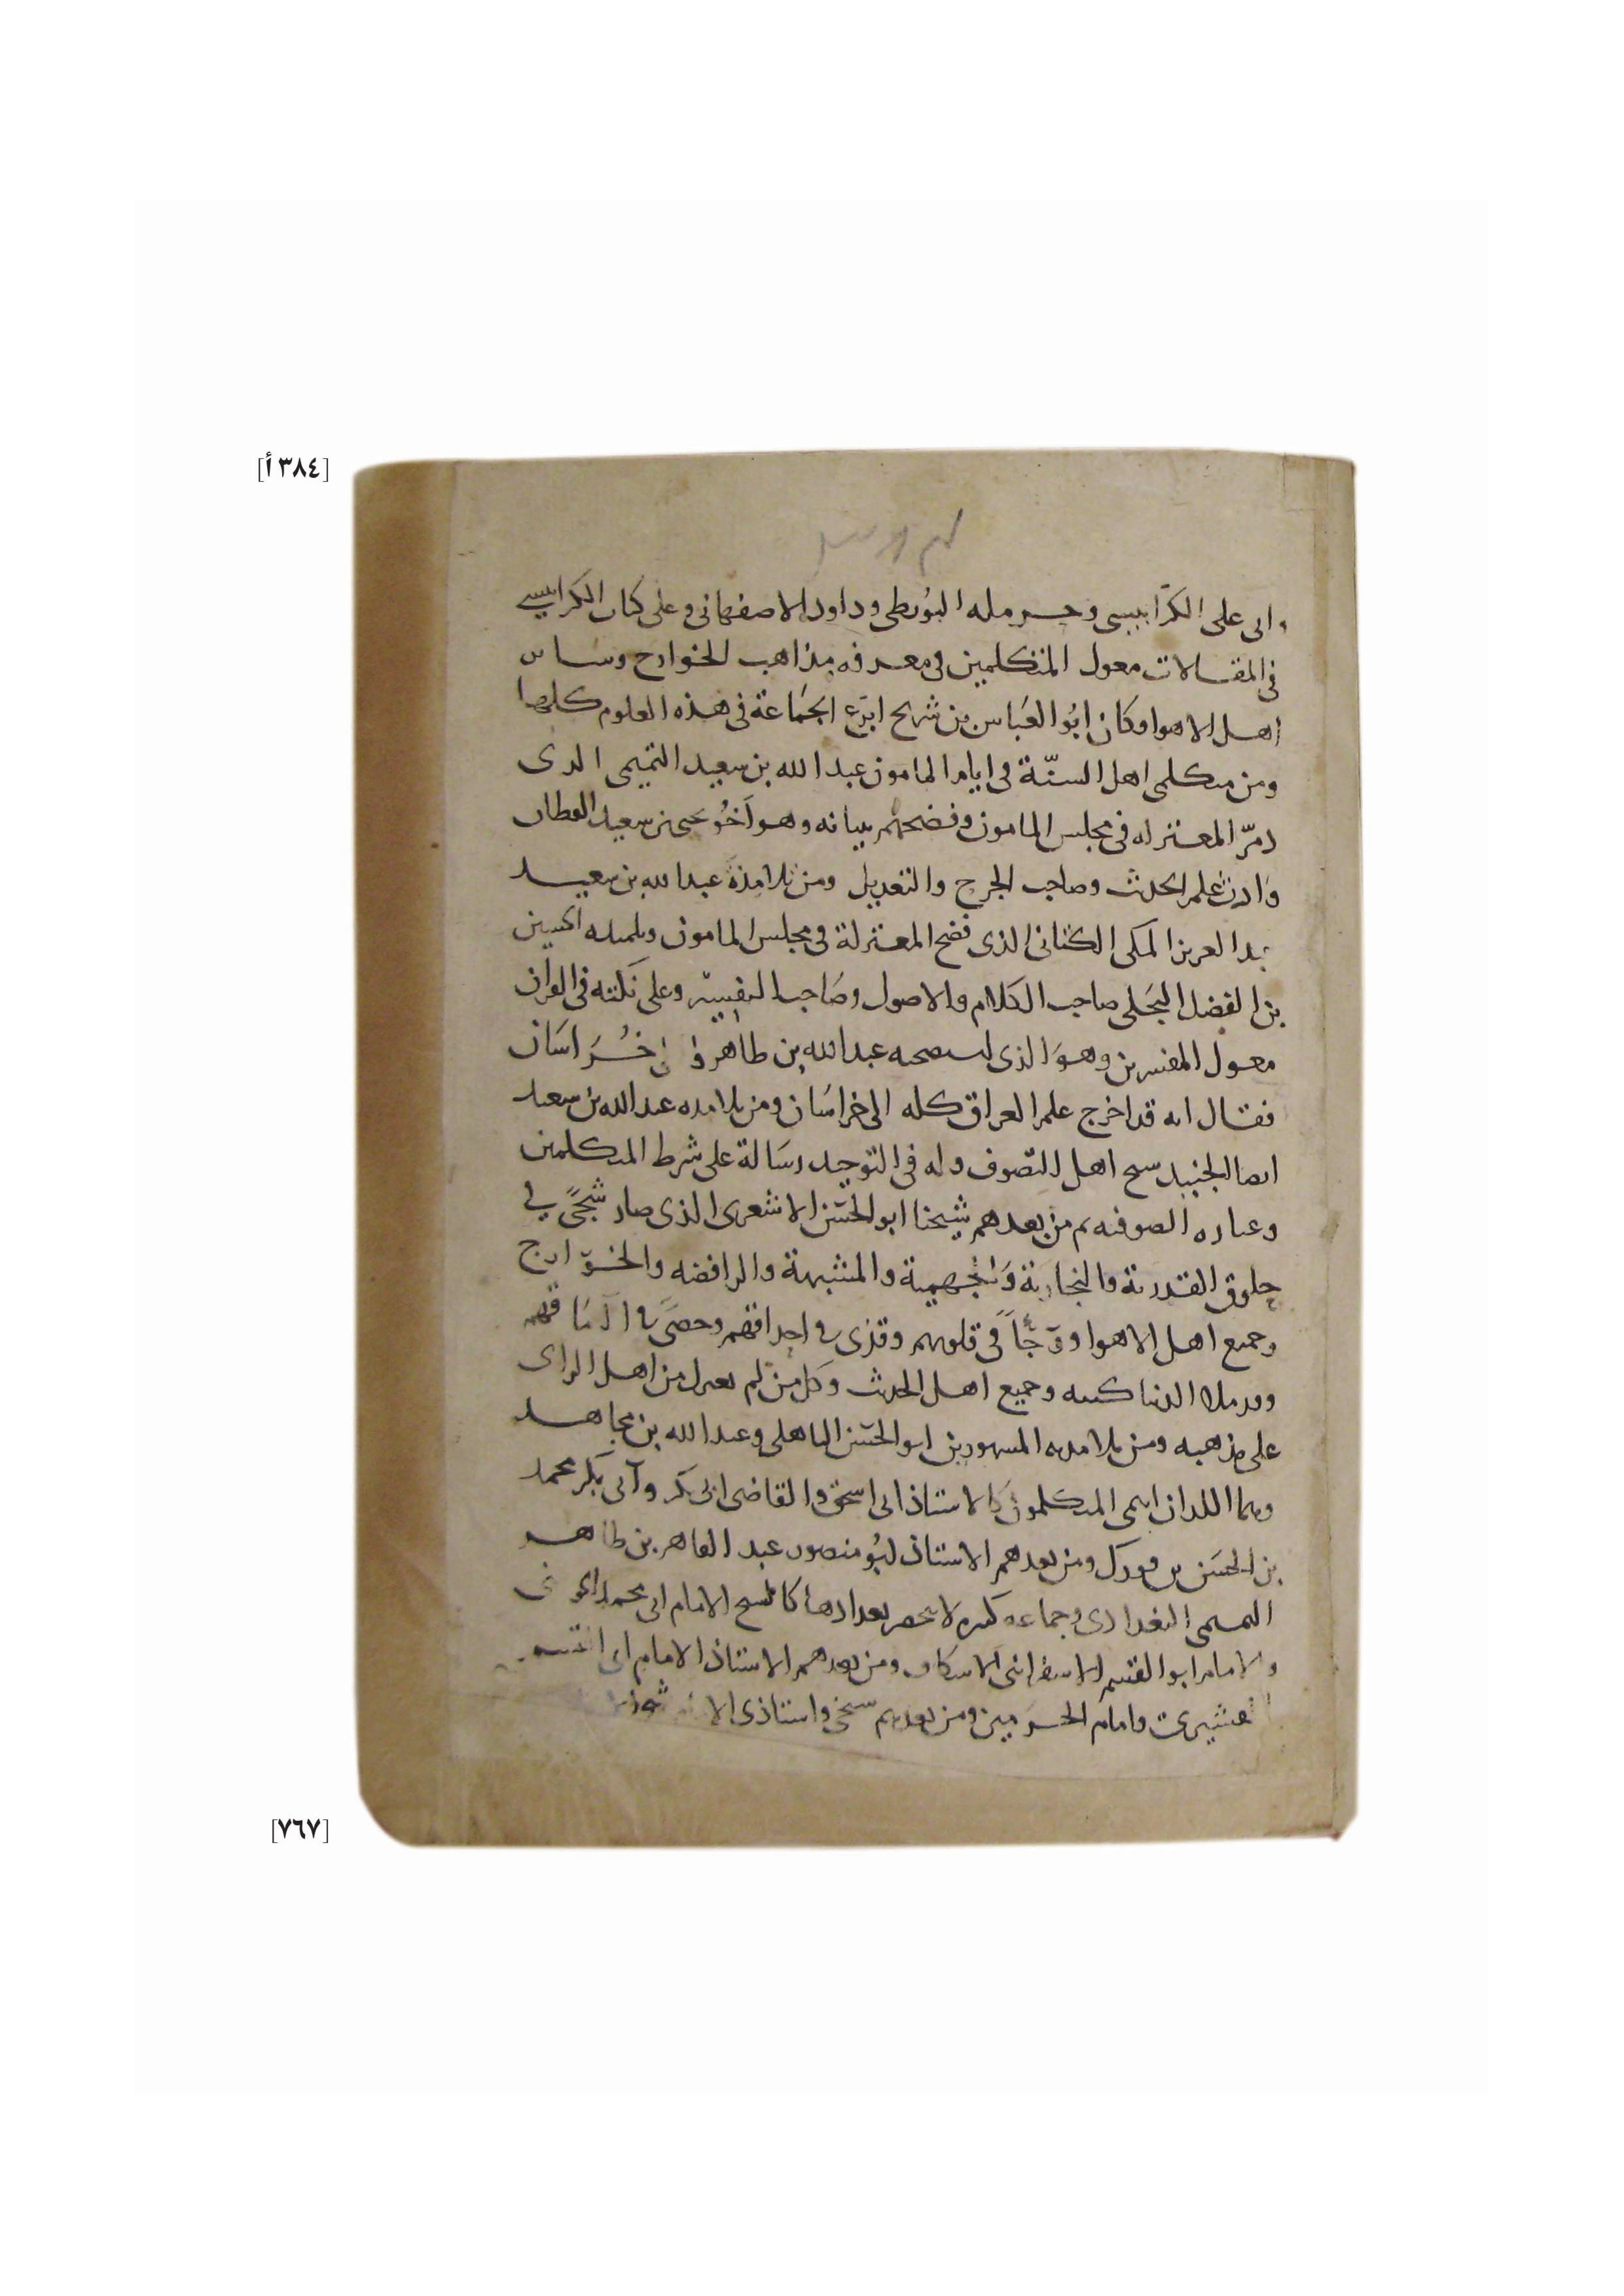 [٣٨٤أ]
وابى على الكرابيسى وحرمله البويطى وداود الاصفهانى وعلى كتاب الكرابيسى
فى المقالات معول المتكلمين فى معرفه مذاهب الخوارج وسائر
اهل الاهوا وكان ابو العباس بن شريح ابرع الجماعة فى هذه العلوم كلها
ومن متكلمى اهل السنّة فى ايام المامون عبد الله بن سعيد التميمى الذى
دمّر المعتزله فى مجلس المامون وفضحهم ببيانه وهو اخو يحيى بن سعيد القطان
وارث علم الحديث وصاحب الجرح والتعديل ومن تلامذة عبد الله بن سعيد
عبد العزيز المكى الكتانى الذى فضح المعتزلة فى مجلس المامون وتلميذه الحسين
بن الفضل البجلى صاحب الكلام والاصول وصاحب التفسير وعلى نكته فى القران
معول المفسرين وهو الذى استصحبه عبد الله بن طاهر خراسان
فقال انه قد اخرج علم العراق كله الى خراسان ومن تلامذه عبد الله بن سعيد
ايضا الجنيد شيخ اهل التصوف وله فى التوحيد رسالة على شرط المتكلمين
وعباره الصوفيه ثم من بعدهم شيخنا ابو الحسن الاشعرى الذى صار شجًى فى
حلوق القدرية والنجارية والجهمية والمشبهة والرافضه والخوارج
وجميع اهل الاهوا فى قلوبهم وقذى فى احداقهم
وقد ملا الدنيا كتبه وجميع اهل الحديث وكل من لم يعتزل من اهل الراى
على مذهبه ومن تلامذته المشهورين ابو الحسن الباهلى وعبد الله بن مجاهد
وهما اللذان المتكلمون كالاستاذ ابى اسحق والقاضى ابى بكر وابى بكر محمد
بن الحسن بن فورك ومن بعدهم الاستاذ ابو منصور عبد القاهر بن طاهر
التميمى البغدادى وجماعه كثيره لا تحصر بعدادها كالشيخ الامام ابى محمد
والامام ابو القسم الاسفراينى الاسكاف ومن بعدهم الاستاذ الامام ابى القسم
القشيرى وامام الحرمين ومن بعدهم شيخى واستاذى
[٧٦٧]